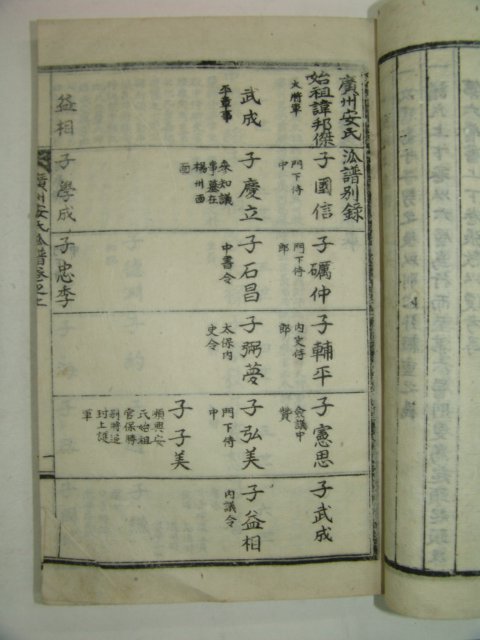 廣州安氏派譜別錄
始祖諱邦傑
大將軍
子國信
門下侍
中
子礪仲
門下侍
郎
子輔平
內史侍
郎
子憲思
僉議中
贊
子武成
武成
平章事
子慶立
參知議
事墓在
楊州西
面
子石昌
中書令
子弼夢
太保內
史令
子弘美
門下侍
中
子子美
順興安
氏始祖
官保勝
別將追
封上護
軍
子益相
內議令
益相
子學成
子忠李
廣州安氏派譜卷之上
一